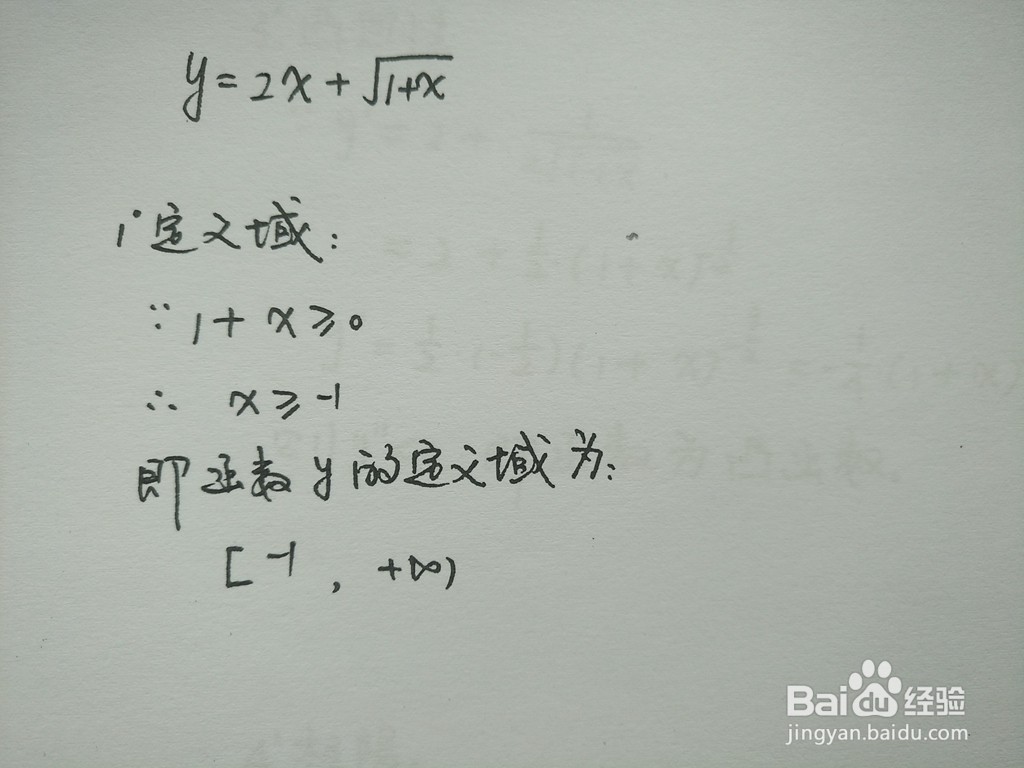 y=2x+√1+x
1°定义域:
∵1+x≥0
∴ x≥-1
即函数y的定义域为:
[-1, +∞)
Baidu经验
jingyan.baidu.com